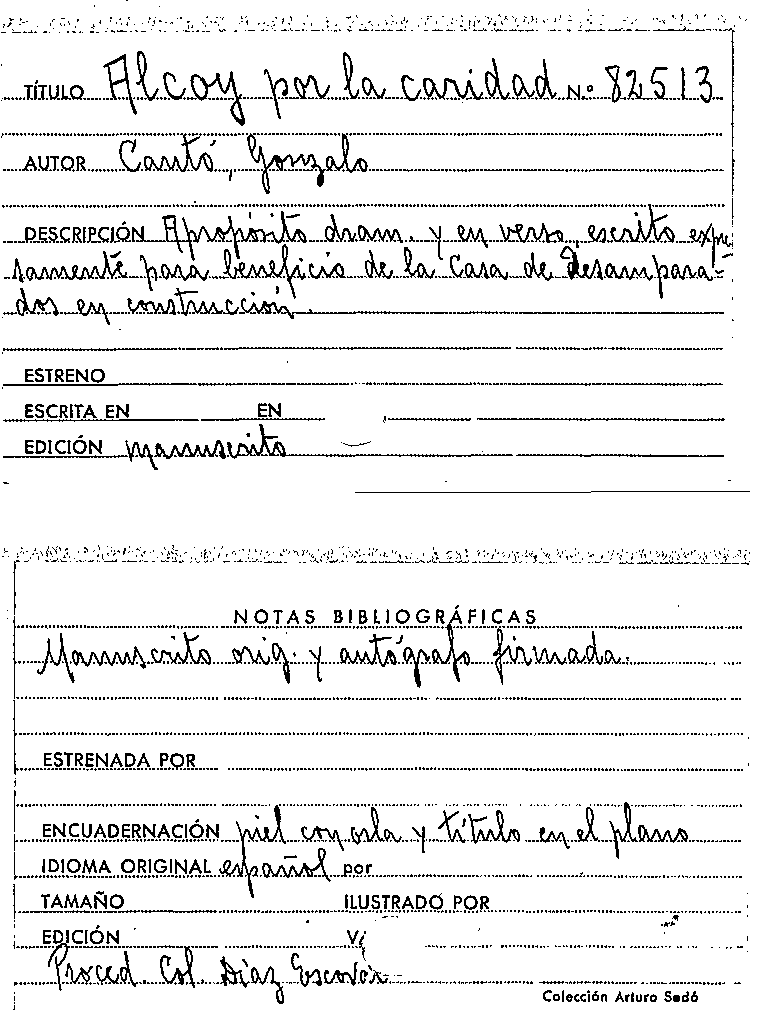 TÍTULO Alcoy por la caridad N.º 82513
AUTOR Cantó, Gonzalo
DESCRIPCIÓN Apropósito dram. y en verso, escrito expre-
samente para beneficio de la Casa de Desampara-
dos en construcción.
ESTRENO
ESCRITA EN EN
EDICIÓN manuscrito
NOTAS BIBLIOGRÁFICAS
Manuscrito orig. y autógrafo firmada.
ESTRENADA POR
ENCUADERNACIÓN piel con orla y título en el plano
IDIOMA ORIGINAL español por
TAMAÑO ILUSTRADO POR
EDICIÓN
Proced. Col. Díaz Escovar
Colección Arturo Sedó